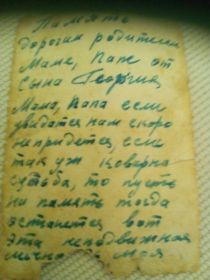 Память
дорогим родителям
Маме, Папе от
сына Георгия
Мама, Папа если
увидатся нам скоро
не придется, если
так уж коварна
судьба, то пусть
на память тогда
останется вот
эта неподвижная
личность моя